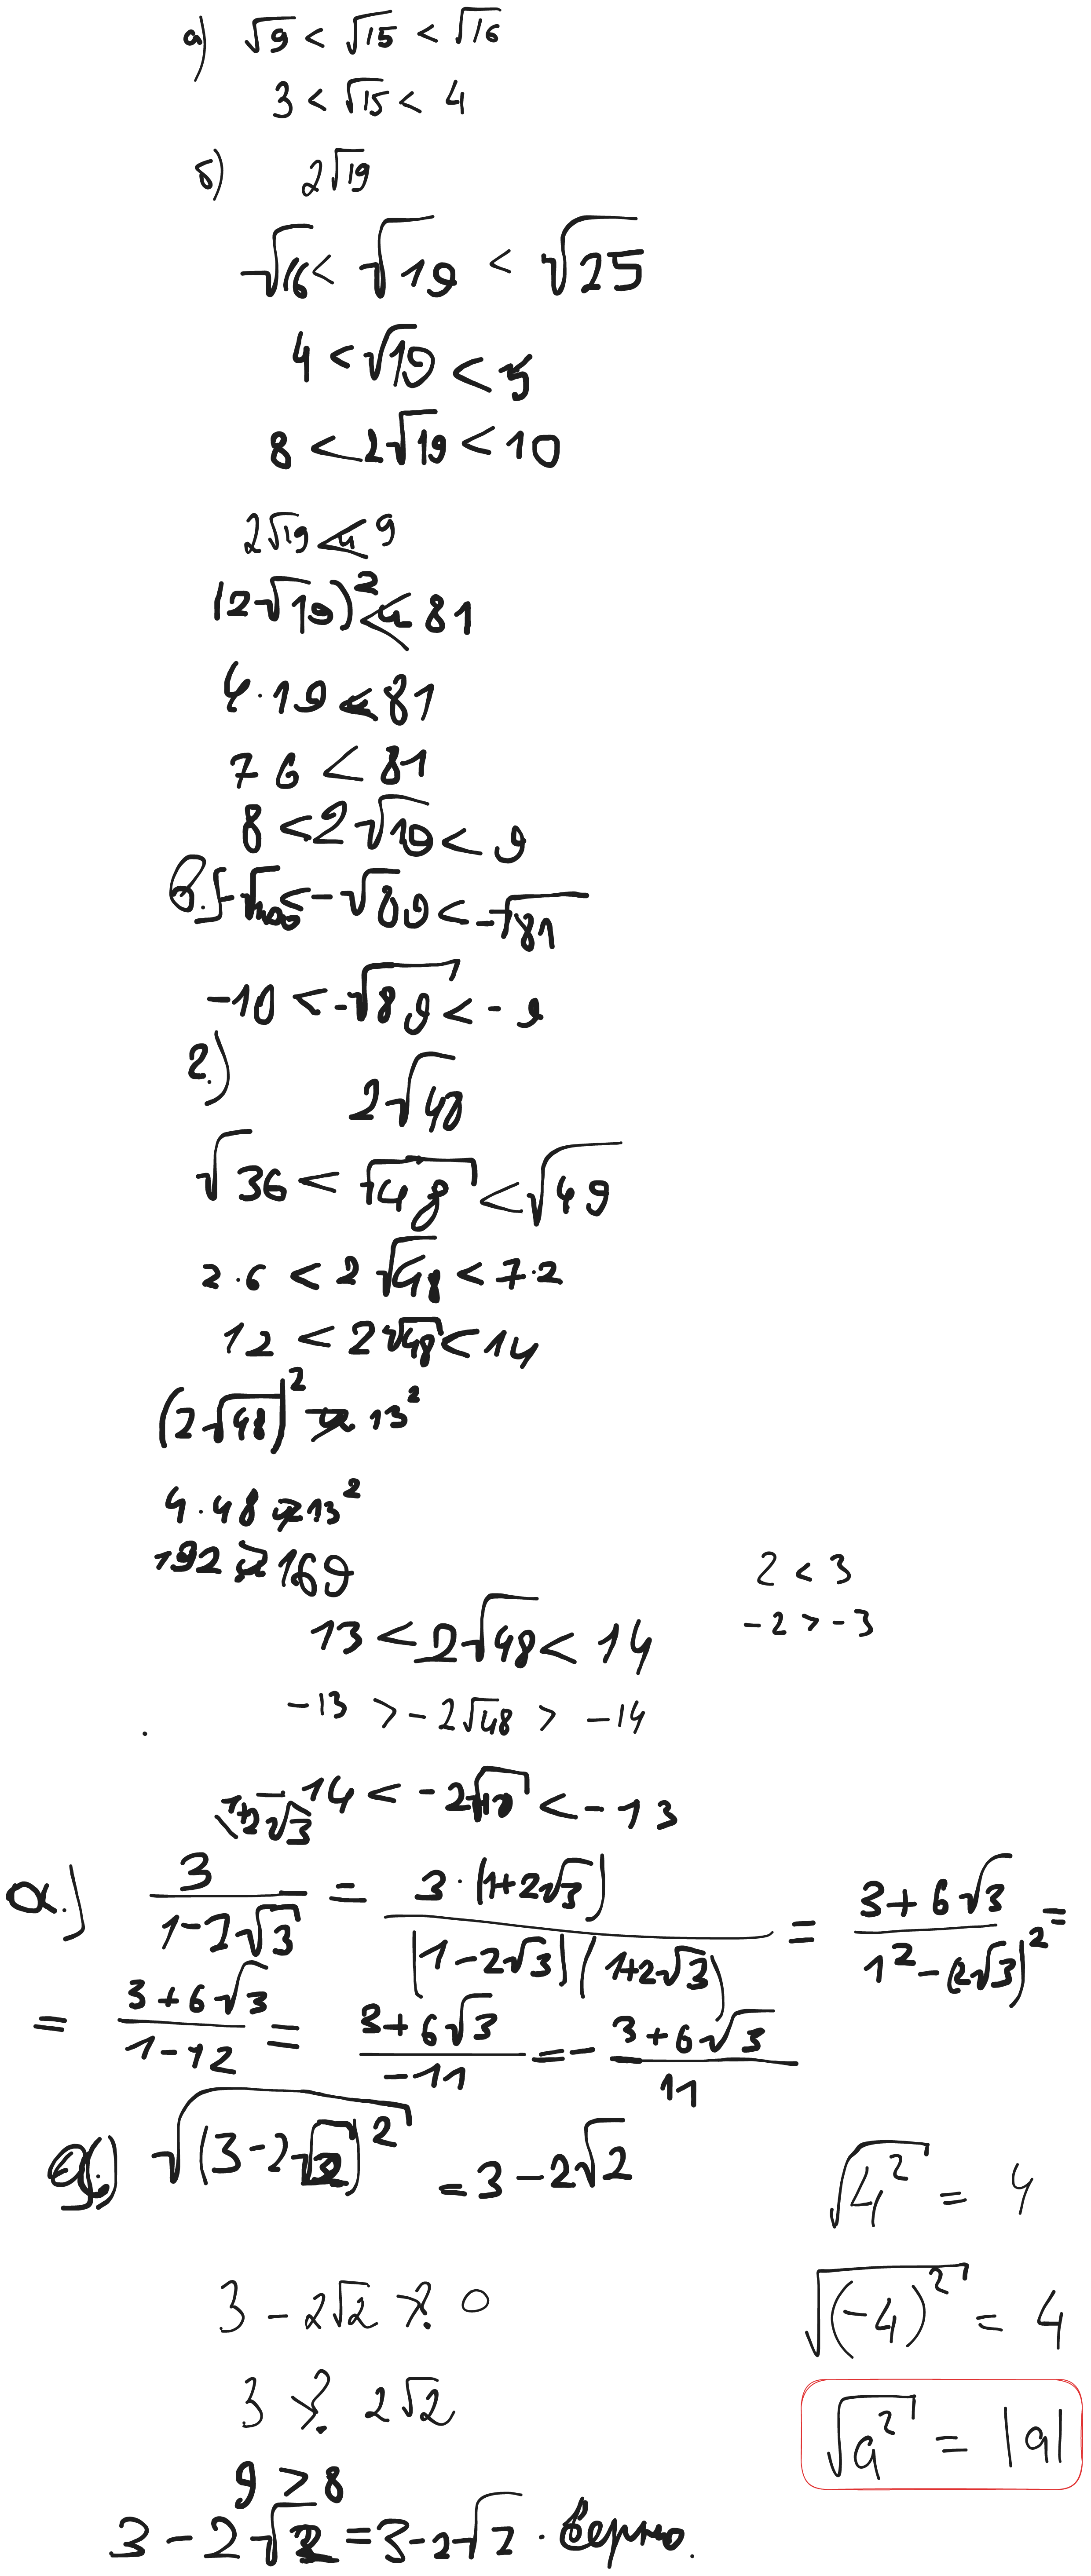 а) √9 < √15 < √16
3 < √15 < 4
б) 2√19
√16 < √19 < √25
4 < √19 < 5
8 < 2√19 < 10
2√19 < 9
(2√19)² < 81
4·19 < 81
76 < 81
8 < 2√19 < 9
в.) -√100 < -√89 < -√81
-10 < -√89 < -9
г.)
2√48
√36 < √48 < √49
2·6 < 2√48 < 7·2
12 < 2√48 < 14
(2√48)² > 13²
4·48 > 13²
192 > 169
2 < 3
-2 > -3
13 < 2√48 < 14
-13 > -2√48 > -14
-14 < -2√48 < -13
1+2√3
а.) 3/(1-2√3) = 3·(1+2√3)/((1-2√3)(1+2√3)) = (3+6√3)/(1²-(2√3)²) =
= (3+6√3)/(1-12) = (3+6√3)/(-11) = - (3+6√3)/11
√(3-2√2)² = 3-2√2
√4² = 4
3 - 2√2 >? 0
√(-4)² = 4
3 >? 2√2
√a² = |a|
9 > 8
3 - 2√2 = 3 - 2√2 . верно.